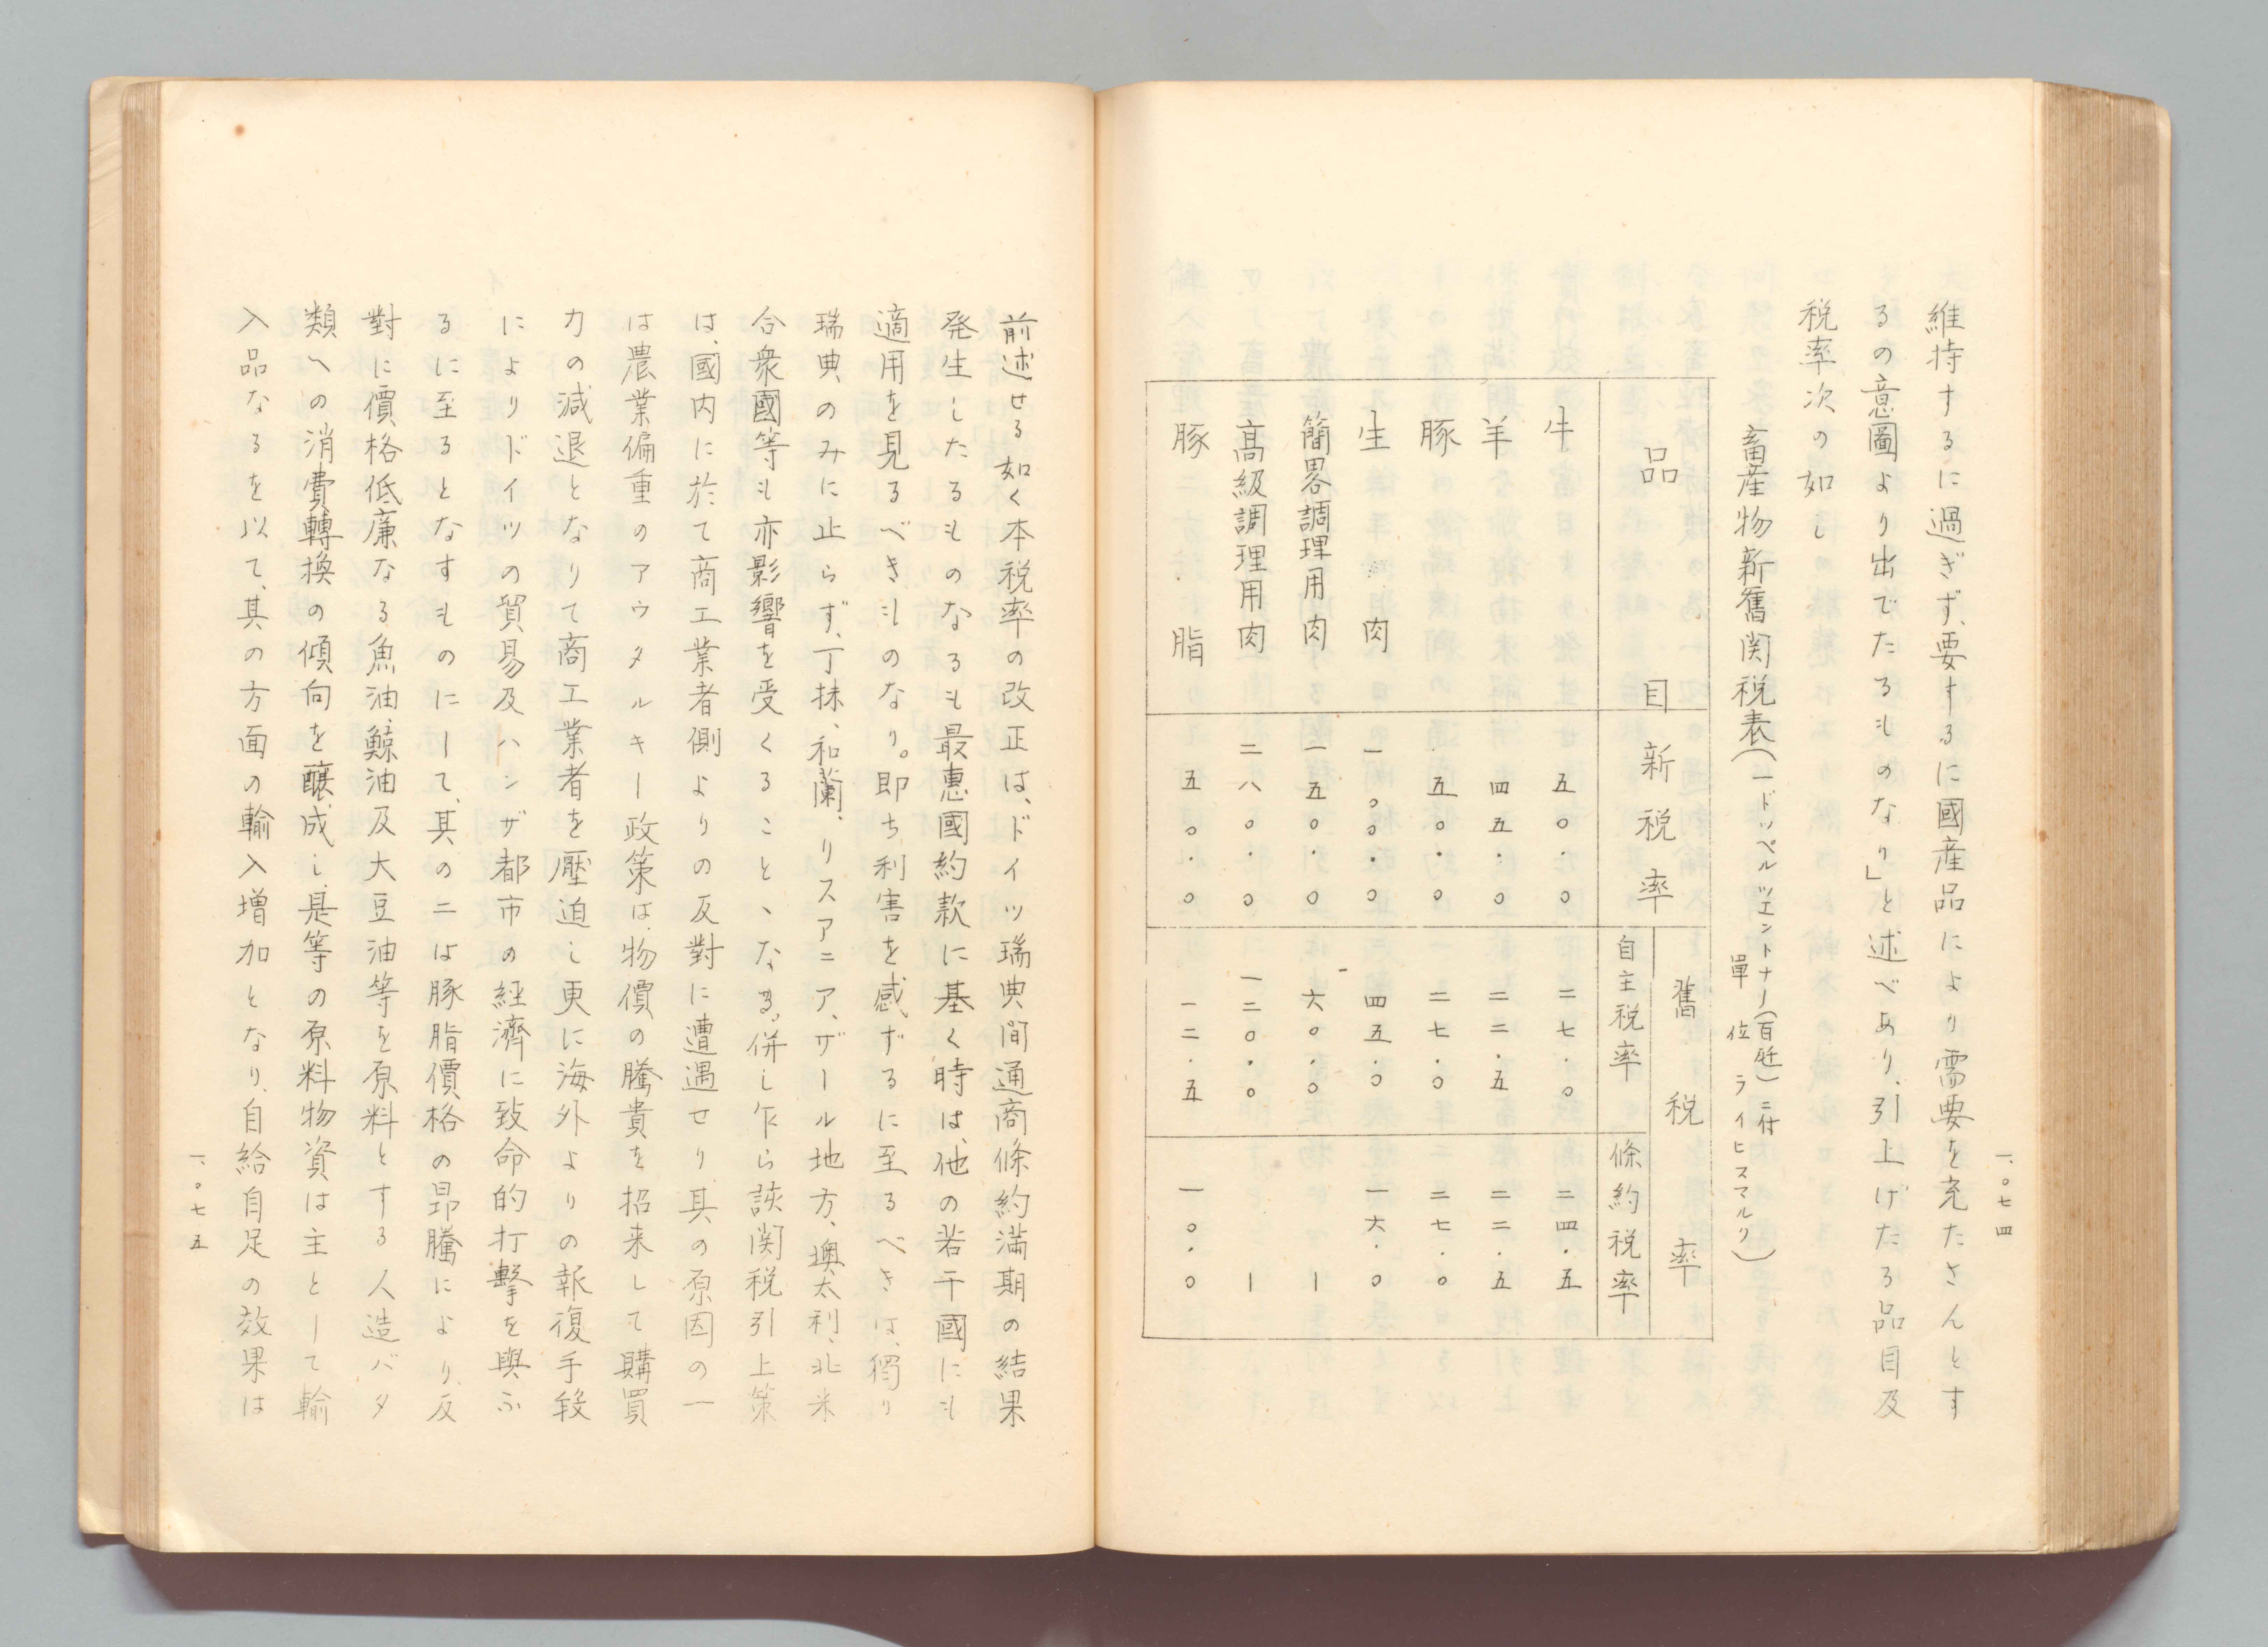 維持するに過ぎず、要するに國産品により需要を充たさんとす
るの意圖より出でたるものなり」と述べあり、引上げたる品目及
税率次の如し
畜産物新舊関税表(一ドッペルツエントナー(百瓩)ニ付
單位 ライヒスマルク)
品目 新税率 舊税率
自主税率 條約税率
牛 五〇.〇 二七.〇 二四.五
羊 四五.〇 二二.五 二二.五
豚 五〇.〇 二七.〇 二七.〇
生肉 一〇〇.〇 四五.〇 一六.〇
簡畧調理用肉 一五〇.〇 六〇.〇 ー
高級調理用肉 二八〇.〇 一二〇.〇 ー
豚脂 五〇.〇 一二.五 一〇.〇
一、〇七四
前述せる如く本税率の改正は、ドイツ瑞典間通商條約満期の結果
発生したるものなるも最惠國約款に基く時は、他の若干國にも
適用を見るべきものなり。即ち利害を感ずるに至るべきは、獨り
瑞典のみに止らず、丁抹、和蘭、リスアニア、ザール地方、墺太利、北米
合衆國等も亦影響を受くること、なる。併し乍ら該関税引上策
は、國内に於て商工業者側よりの反對に遭遇せり、其の原因の一
は農業偏重のアウタルキー政策は、物價の騰貴を招来して購買
力の減退となりて商工業者を壓迫し更に海外よりの報復手段
によりドイツの貿易及ハンザ都市の経濟に致命的打擊を與ふ
るに至るとなすものにして、其の二は豚脂價格の昂騰により、反
對に價格低廉なる魚油、鯨油及大豆油等を原料とする人造バタ
類への消費轉換の傾向を釀成し、是等の原料物資は主として輸
入品なるを以て、其の方面の輸入増加となり、自給自足の效果は
一、〇七五